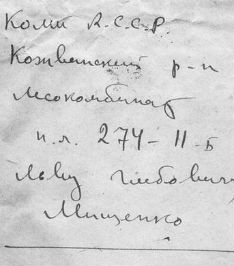 Коми А.С.С.Р.
Кожвинский р-н
лесокомбинат
п.я. 274-11-Б
Льву Глебовичу
Мищенко